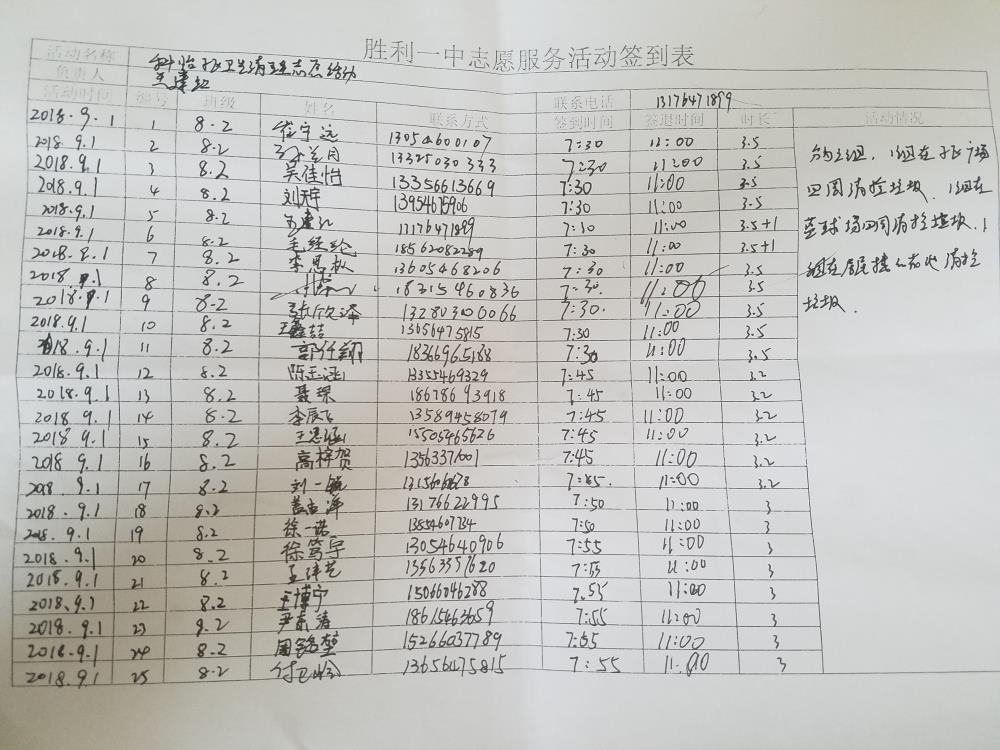 胜利一中志愿服务活动签到表
活动名称 卫生清理志愿活动
负责人 联系电话 13176471899
活动时间 编号 班级 姓名 联系方式 签到时间 签退时间 时长 活动情况
2018.9.1 1 8.2 崔宁远 13054600107 7:30 11:00 3.5
2018.9.1 2 8.2 13325030333 7:30 11:00 3.5
2018.9.1 3 8.2 吴佳怡 13356613669 7:30 11:00 3.5
2018.9.1 4 8.2 刘 13954675906 7:30 11:00 3.5
2018.9.1 5 8.2 17176471899 7:30 11:00 3.5+1
2018.9.1 6 8.2 毛经纶 18562082289 7:30 11:00 3.5+1
2018.8.1 7 8.2 李思 13605468206 7:30 11:00 3.5
2018.9.1 8 8.2 18215460836 7:30. 11:00 3.5
2018.9.1 9 8.2 张欣泽 13280310066 7:30. 11:00 3.5
2018.9.1 10 8.2 王鑫喆 13656475815 7:30 11:00 3.5
2018.9.1 11 8.2 郭任翔 18366965188 7:30 11:00 3.5
2018.9.1 12 8.2 陈玉涵 13355469329 7:45 11:00 3.2
2018.9.1 13 8.2 聂琛 18678693918 7:45 11:00 3.2
2018.9.1 14 8.2 李辰飞 13589458079 7:45 11:00 3.2
2018.9.1 15 8.2 王思涵 15505465626 7:45 11:00 3.2
2018 9.1 16 8.2 高梓贺 7:45 11:00 3.2
2018.9.1 17 8.2 刘一 11:00 3.2
2018.9.1 18 8.2 13176622995 7:50 11:00 3
2018.9.1 19 8.2 徐一诺 13554607734 7:50 11:00 3
2018.9.1 20 8.2 徐笃宇 13054640906 7:55 11:00 3
2018.9.1 21 8.2 王 7:55 11:00 3
2018.9.1 22 8.2 王博宁 15066046288 7.55 11:00 3
2018.9.1 23 9.2 尹 18615463659 7:55 11:00 3
2018.9.1 24 8.2 周 15266037789 7:55 11:00 3
2018.9.1 25 8.2 付 13656475815 7:55 11.00 3
分为三组,1组在 广场
四周清捡垃圾. 1组在
篮球场四周清捡垃圾.1
组在居民楼 清捡
垃圾.